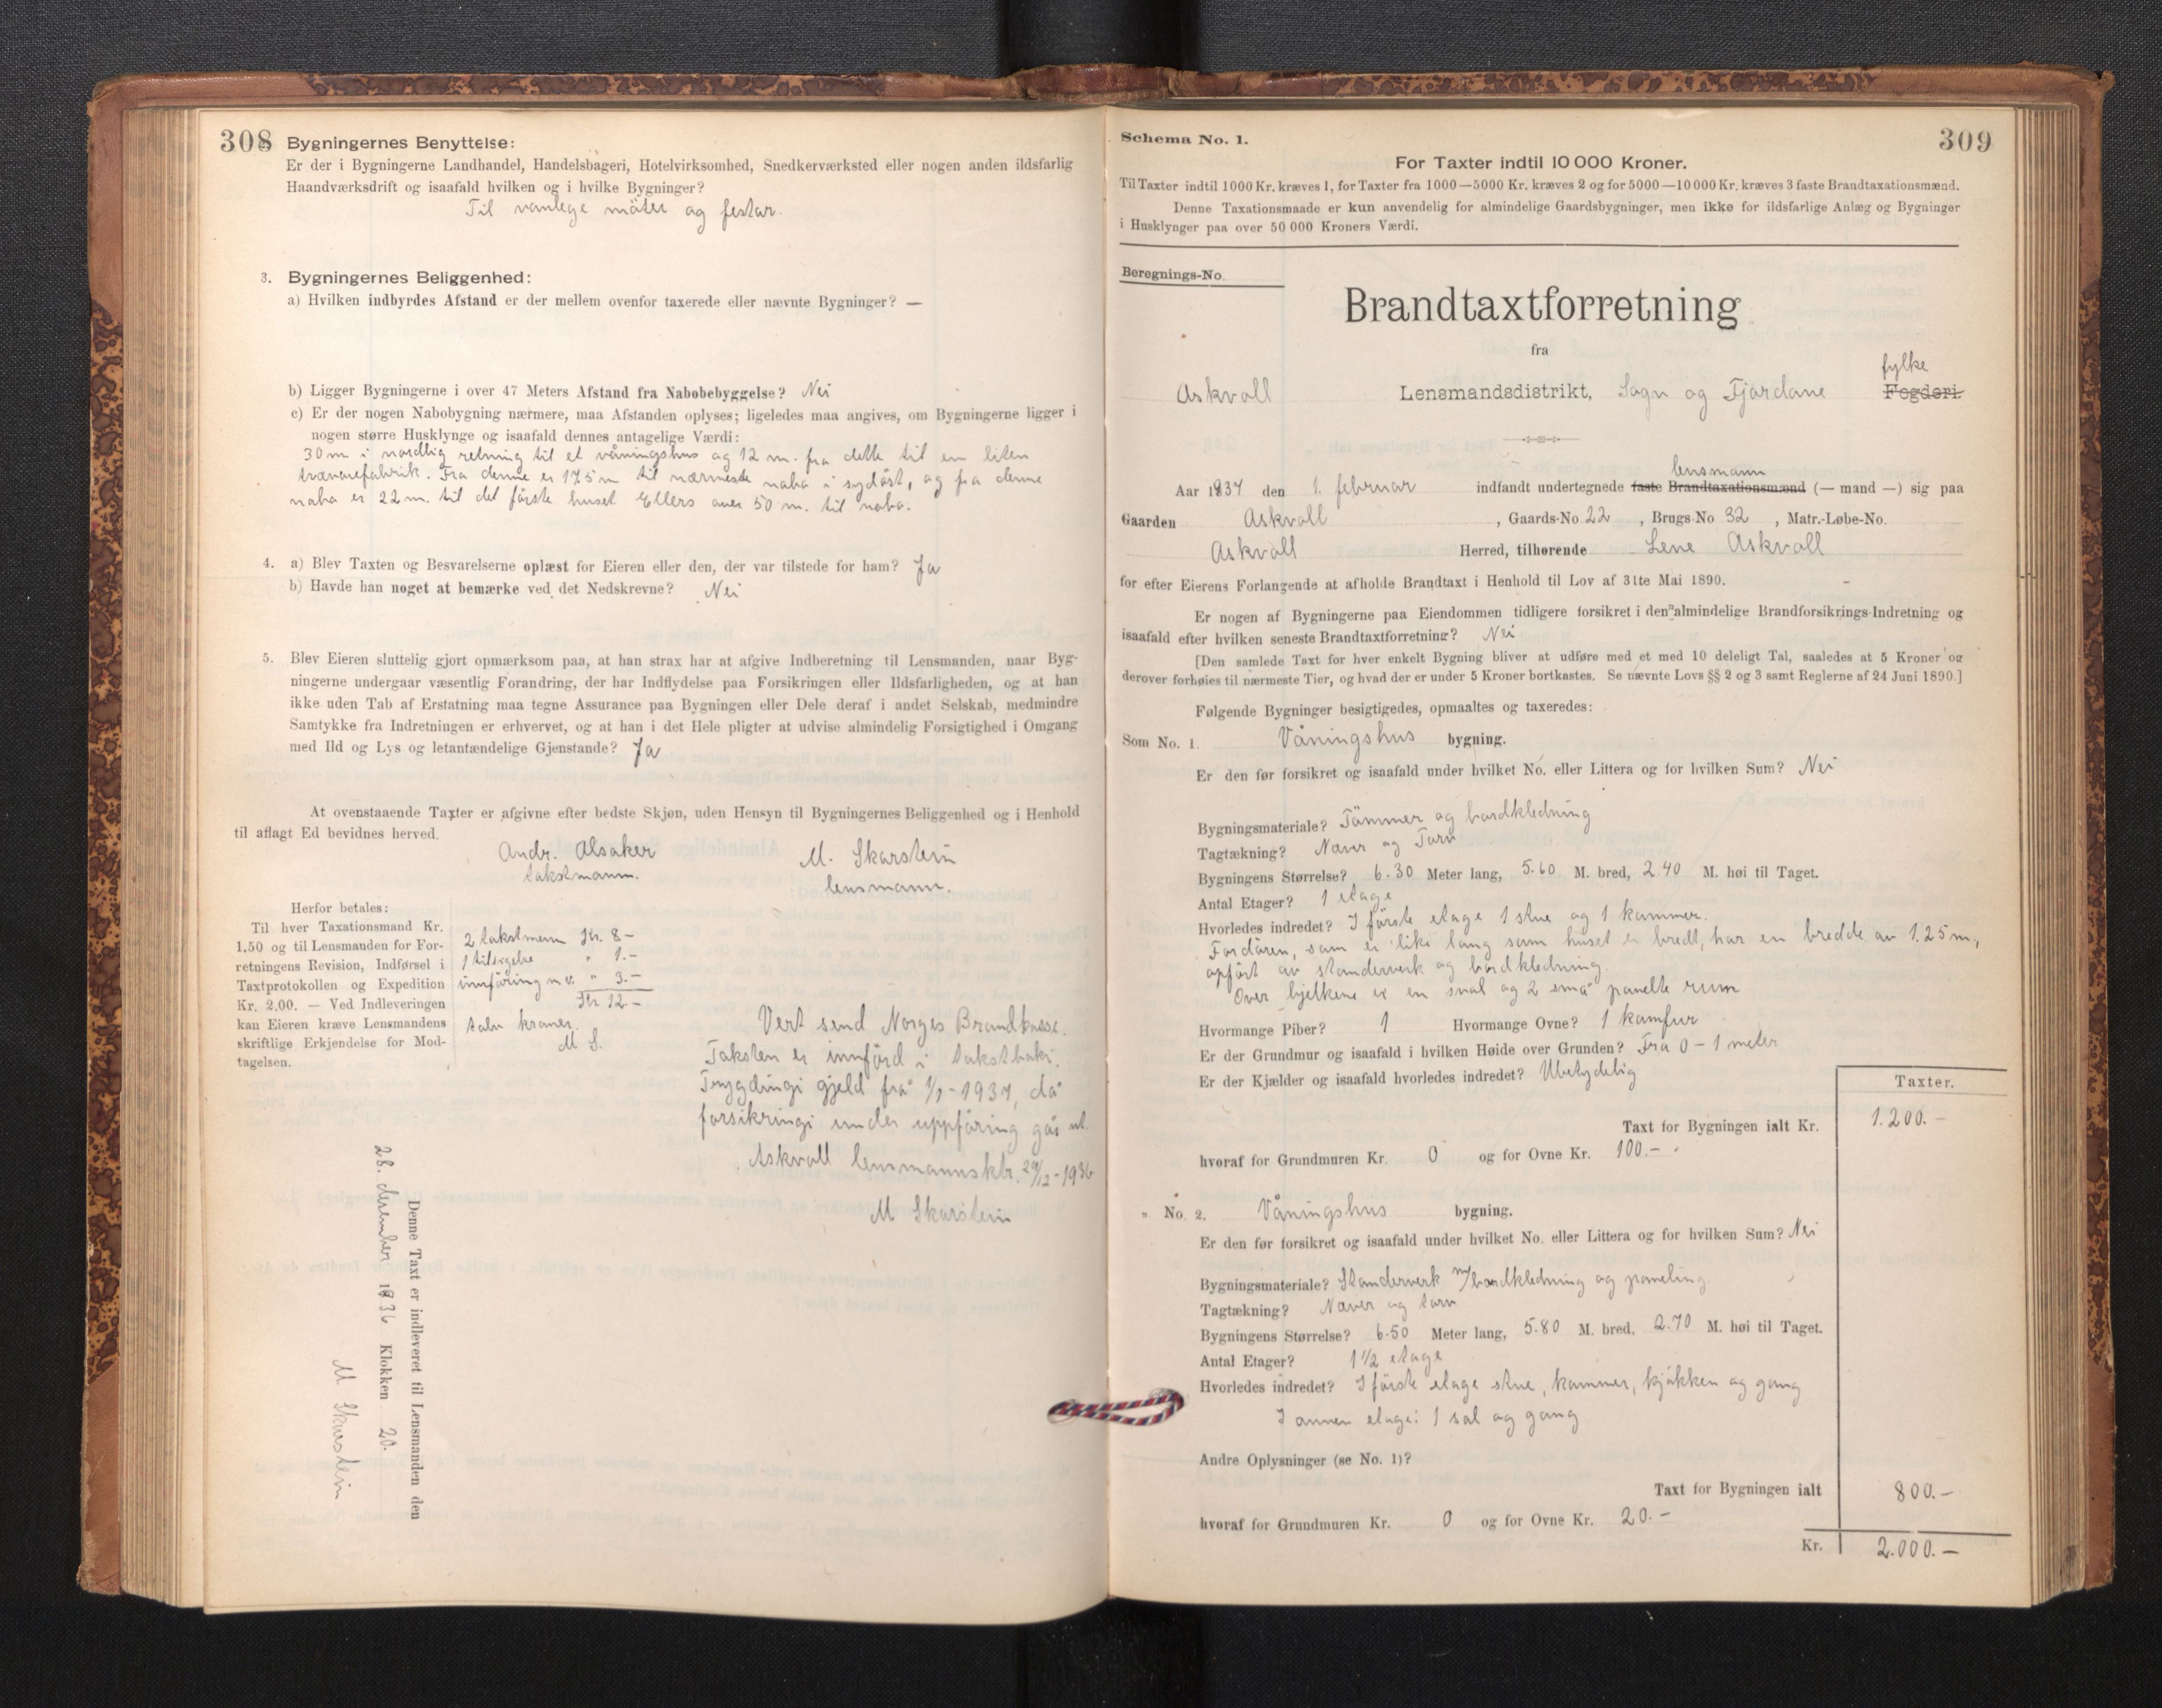 308 Bygningernes Benyttelse:
Er der i Bygningerne Landhandel, Handelsbageri, Hotelvirksomhed, Snedkerværksted eller nogen anden ildsfarlig
Haandværksdrift og isaafald hvilken og i hvilke Bygninger?
Til vanlege möter og festar.
3. Bygningernes Beliggenhed:
a) Hvilken indbyrdes Afstand er der mellem ovenfor taxerede eller nævnte Bygninger? —
b) Ligger Bygningerne i over 47 Meters Afstand fra Nabobebyggelse? Nei
c) Er der nogen Nabobygning nærmere, maa Afstanden oplyses; ligeledes maa angives, om Bygningerne ligger i
nogen større Husklynge og isaafald dennes antagelige Værdi:
30 m i nordlig retning til et våningshus og 12 m. fra dette til en liten
trævarefabrik. Fra denne er 17.5 m til nærmeste nabo i sydöst, og fra denne
nabo er 22 m. til det förste huset. Ellers over 50 m. til nabo.
4. a) Blev Taxten og Besvarelserne oplæst for Eieren eller den, der var tilstede for ham? Ja
b) Havde han noget at bemærke ved det Nedskrevne? Nei
5. Blev Eieren sluttelig gjort opmærksom paa, at han strax har at afgive Indberetning til Lensmanden, naar Byg-
ningerne undergaar væsentlig Forandring, der har Indflydelse paa Forsikringen eller Ildsfarligheden, og at han
ikke uden Tab af Erstatning maa tegne Assurance paa Bygningen eller Dele deraf i andet Selskab, medmindre
Samtykke fra Indretningen er erhvervet, og at han i det Hele pligter at udvise almindelig Forsigtighed i Omgang
med Ild og Lys og letantændelige Gjenstande? Ja
At ovenstaaende Taxter er afgivne efter bedste Skjøn, uden Hensyn til Bygningernes Beliggenhed og i Henhold
til aflagt Ed bevidnes herved.
Andr. Alsaker M. Skarstein
takstmann. lensmann.
Herfor betales:
Til hver Taxationsmand Kr.
1,50 og til Lensmanden for For-
retningens Revision, Indførsel i
Taxtprotokollen og Expedition
Kr. 2.00. — Ved Indleveringen
kan Eieren kræve Lensmandens
skriftlige Erkjendelse for Mod-
tagelsen.
2 takstmenn Kr. 8 -
1 tilsigelse " 1.-
innföring m v. " 3.-
Kr 12 -
tolv kroner.
M S.
Vert send Norges Brandkasse.
Taksten er innförd i takstboki.
Trygdingi gjeld frå 1/1 - 1937, då
forsikringi under uppföring går ut.
Askvoll lensmannsktr. 29/12 - 1936
M Skarstein
Denne Taxt er indleveret til Lensmanden den
28. desember 1936 Klokken 20.
M Skarstein
Schema No. 1. 309
For Taxter indtil 10 000 Kroner.
Til Taxter indtil 1000 Kr. kræves 1, for Taxter fra 1000—5000 Kr. kræves 2 og for 5000—10 000 Kr. kræves 3 faste Brandtaxationsmænd.
Denne Taxationsmaade er kun anvendelig for almindelige Gaardsbygninger, men ikke for ildsfarlige Anlæg og Bygninger
i Husklynger paa over 50 000 Kroners Værdi.
Beregnings-No.
Brandtaxtforretning
fra
fylke
Askvoll Lensmandsdistrikt, Sogn og Fjordane Fogderi.
lensmann
Aar 1937 den 1. februar indfandt undertegnede faste Brandtaxationsmænd (— mand —) sig paa
Gaarden Askvoll, Gaards-No. 22, Brugs-No 32, Matr.-Løbe-No.
Askvoll Herred, tilhørende Lene Askvoll
for efter Eierens Forlangende at afholde Brandtaxt i Henhold til Lov af 31te Mai 1890.
Er nogen af Bygningerne paa Eiendommen tidligere forsikret i den almindelige Brandforsikrings-Indretning og
isaafald efter hvilken seneste Brandtaxtforretning? Nei
[Den samlede Taxt for hver enkelt Bygning bliver at udføre med et med 10 deleligt Tal, saaledes at 5 Kroner og
derover forhøies til nærmeste Tier, og hvad der er under 5 Kroner bortkastes. Se nævnte Lovs §§ 2 og 3 samt Reglerne af 24 Juni 1890.]
Følgende Bygninger besigtigedes, opmaaltes og taxeredes:
Som No. 1. Våningshus bygning.
Er den før forsikret og isaafald under hvilket No. eller Littera og for hvilken Sum? Nei
Bygningsmateriale? Tömmer og bordkledning
Tagtækning? Never og Torv
Bygningens Størrelse? 6.30 Meter lang, 5.60 M. bred, 2.40 M. høi til Taget.
Antal Etager? 1 etage
Hvorledes indredet? I förste etage 1 stue og 1 kammer.
Fordören, som er like lang som huset er bredt, har en bredde av 1.25 m,
opfört av standerverk og bordkledning.
Over bjelkene er en sval og 2 små panelte rum
Hvormange Piber? 1 Hvormange Ovne? 1 komfur
Er der Grundmur og isaafald i hvilken Høide over Grunden? Fra 0 - 1 meter
Er der Kjælder og isaafald hvorledes indredet? Ubetydelig
Taxter.
Taxt for Bygningen ialt Kr. 1.200.-
hvoraf for Grundmuren Kr. 0 og for Ovne Kr. 100.-
" No. 2. Våningshus bygning.
Er den før forsikret og isaafald under hvilket No. eller Littera og for hvilken Sum? Nei
Bygningsmateriale? Standerverk m/bordkledning og paneling.
Tagtækning? Never og torv
Bygningens Størrelse? 6.50 Meter lang, 5.80 M. bred, 2.70 M. høi til Taget.
Antal Etager? 1 1/2 etage
Hvorledes indredet? I förste etage stue, kammer, kjökken og gang
I annen etage: 1 sal og gang
Andre Oplysninger (se No. 1)?
Taxt for Bygningen ialt 800.-
hvoraf for Grundmuren Kr. 0 og for Ovne Kr. 20.-
Kr. 2.000.-